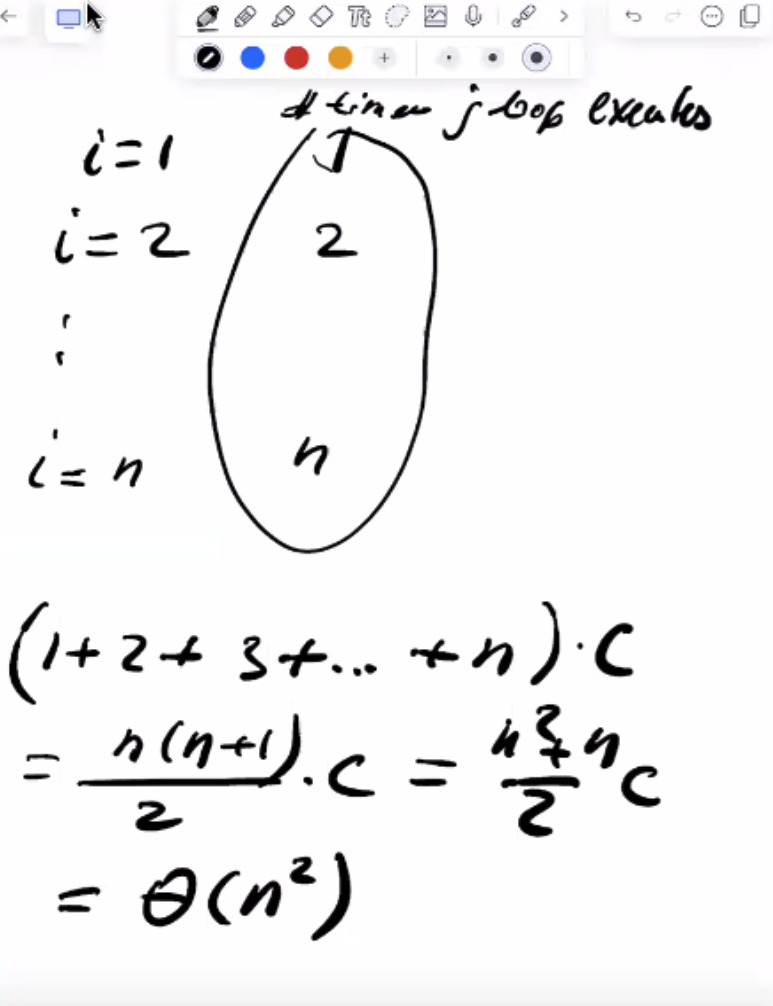 Tt
# times j loop executes
i=1 1
i=2 2
⋮
i=n n
(1+2+3+... +n)·C
= n(n+1)/2 · C = n²+n/2 C
= θ(n²)